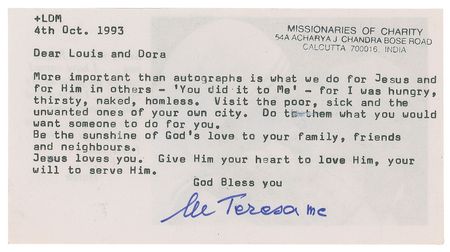 +LDM
4th Oct. 1993
MISSIONARIES OF CHARITY
54A ACHARYA J. CHANDRA BOSE ROAD
CALCUTTA 700016, INDIA
Dear Louis and Dora
More important than autographs is what we do for Jesus and
for Him in others - 'You did it to Me' - for I was hungry,
thirsty, naked, homless. Visit the poor, sick and the
unwanted ones of your own city. Do to them what you would
want someone to do for you.
Be the sunshine of God's love to your family, friends
and neighbours.
Jesus loves you. Give Him your heart to love Him, your
will to serve Him.
God Bless you
M Teresa mc